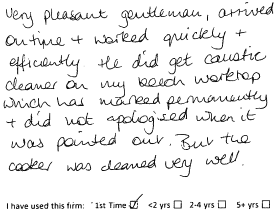 Very pleasant gentleman, arrived
on time + worked quickly +
efficiently. He did get caustic
cleaner on my beech worktop
which has marked permanently
+ did not apologised when it
was pointed out. But the
cooker was cleaned very well.
I have used this firm: 1st Time ☑ <2 yrs ☐ 2-4 yrs ☐ 5+ yrs ☐